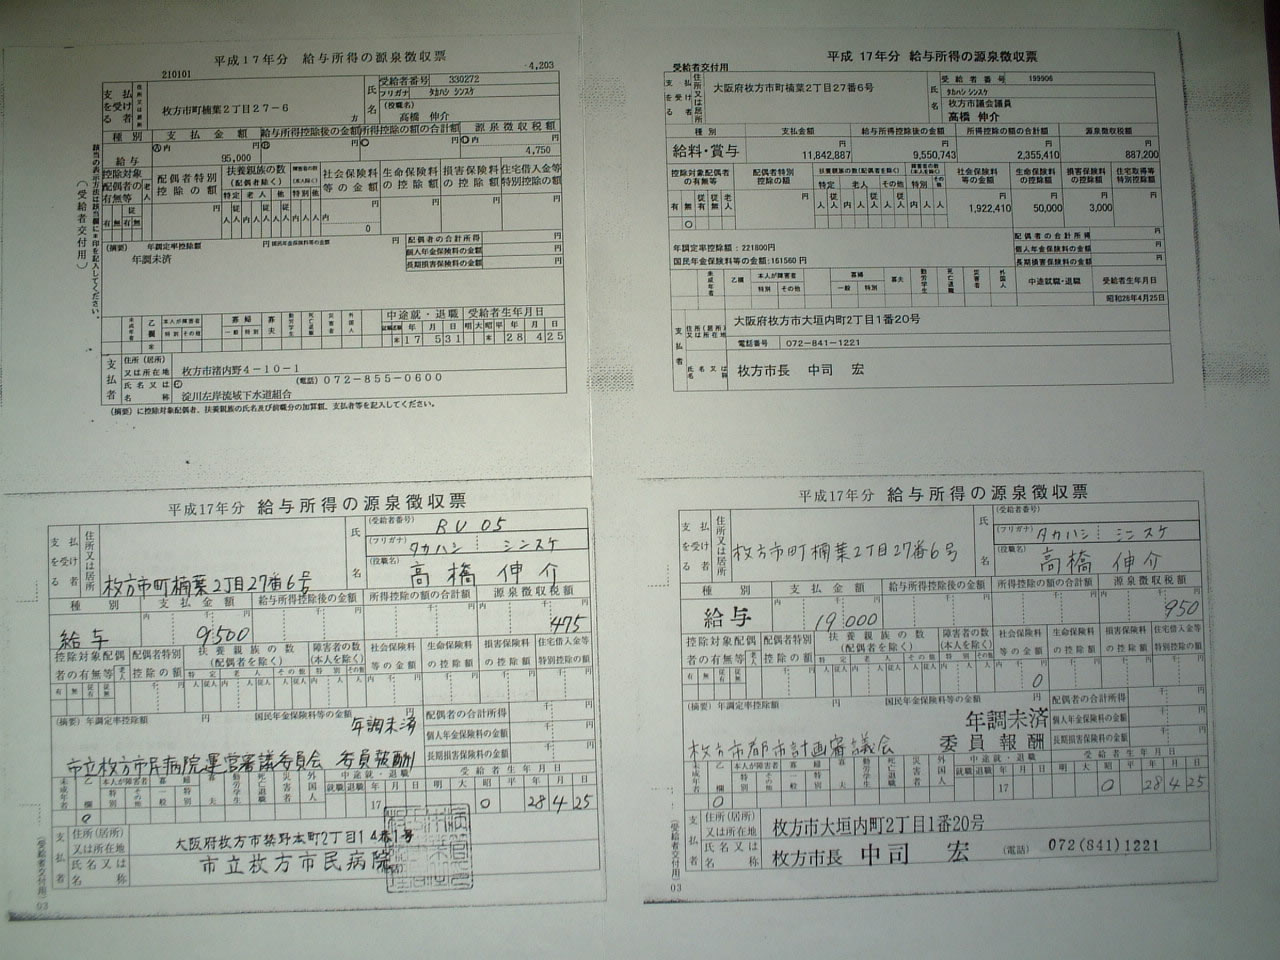 平成17年分 給与所得の源泉徴収票
210101
-4,203
支払を受ける者
住所又は居所
枚方市町楠葉2丁目27-6
方
氏名
受給者番号 330272
フリガナ タカハシ シンスケ
(役職名)
高橋 伸介
種別 支払金額 給与所得控除後の金額 所得控除の額の合計額 源泉徴収税額
給与 95,000 4,750
控除対象配偶者の有無等 老人 配偶者特別控除の額 扶養親族の数(配偶者を除く) 社会保険料等の金額 生命保険料の控除額 損害保険料の控除額 住宅借入金等特別控除の額
特定 老人 その他 特別 他
有 無 従有 従無
0
(摘要) 年調定率控除額 円 国民年金保険料等の金額 円
年調未済
配偶者の合計所得
個人年金保険料の金額
長期損害保険料の金額
未成年者 乙欄 本人が障害者 特別 その他 寡婦 一般 特別 寡夫 勤労学生 死亡退職 災害者 外国人 中途就・退職 受給者生年月日
年 月 日 明 大 昭 平 年 月 日
17 5 31 28 4 25
支払者
住所(居所)又は所在地 枚方市渚内野4-10-1
(電話)072-855-0600
氏名又は名称 淀川左岸流域下水道組合
(摘要)に控除対象配偶者、扶養親族の氏名及び前職分の加算額、支払者等を記入してください。
(受給者交付用)
該当の表示方法は該当欄に*印を記入してください。
平成 17年分 給与所得の源泉徴収票
受給者交付用
支払を受ける者
住所又は居所
大阪府枚方市町楠葉2丁目27番6号
氏名
受給者番号 199906
タカハシ シンスケ
枚方市議会議員
高橋 伸介
種別 支払金額 給与所得控除後の金額 所得控除の額の合計額 源泉徴収税額
給料・賞与 11,842,887 9,550,743 2,355,410 887,200
控除対象配偶者の有無等 配偶者特別控除の額 扶養親族の数(配偶者を除く) 障害者の数(本人を除く) 社会保険料等の金額 生命保険料の控除額 損害保険料の控除額 住宅取得等特別控除額
有 無 従有 従無 老人 特定 老人 その他 特別 その他
○ 1,922,410 50,000 3,000
年調定率控除額:221800円
国民年金保険料等の金額:161560円
配偶者の合計所得
個人年金保険料の金額
長期損害保険料の金額
未成年者 乙欄 本人が障害者 特別 その他 寡婦 一般 特別 寡夫 勤労学生 死亡退職 災害者 外国人 中途就職・退職 受給者生年月日
昭和28年4月25日
支払者
住所(居所)又は所在地 大阪府枚方市大垣内町2丁目1番20号
電話番号 072-841-1221
氏名又は名称 枚方市長 中司 宏
平成17年分 給与所得の源泉徴収票
支払を受ける者
住所又は居所
枚方市町楠葉2丁目27番6号
氏名
(受給者番号) RU 05
(フリガナ) タカハシ シンスケ
(役職名)
高橋 伸介
種別 支払金額 給与所得控除後の金額 所得控除の額の合計額 源泉徴収税額
給与 9500 475
控除対象配偶者の有無等 老人 配偶者特別控除の額 扶養親族の数(配偶者を除く) 障害者の数(本人を除く) 社会保険料等の金額 生命保険料の控除額 損害保険料の控除額 住宅借入金等特別控除の額
有 無 従有 従無 特定 老人 その他 特別 その他
(摘要) 年調定率控除額 円 国民年金保険料等の金額 円
年調未済
市立枚方市民病院運営審議委員会 委員報酬
配偶者の合計所得
個人年金保険料の金額
長期損害保険料の金額
未成年者 乙欄 本人が障害者 特別 その他 寡婦 一般 特別 寡夫 勤労学生 死亡退職 災害者 外国人 中途就・退職 受給者生年月日
就職 退職 年 月 日 明 大 昭 平 年 月 日
0 17 0 28 4 25
支払者
住所(居所)又は所在地 大阪府枚方市禁野本町2丁目14番1号
氏名又は名称 市立枚方市民病院
(受給者交付用)
03
平成17年分 給与所得の源泉徴収票
支払を受ける者
住所又は居所
枚方市町楠葉2丁目27番6号
氏名
(受給者番号)
(フリガナ) タカハシ シンスケ
(役職名)
高橋 伸介
種別 支払金額 給与所得控除後の金額 所得控除の額の合計額 源泉徴収税額
給与 19,000 950
控除対象配偶者の有無等 老人 配偶者特別控除の額 扶養親族の数(配偶者を除く) 障害者の数(本人を除く) 社会保険料等の金額 生命保険料の控除額 損害保険料の控除額 住宅借入金等特別控除の額
有 無 従有 従無 特定 老人 その他 特別 その他
0
(摘要) 年調定率控除額 円 国民年金保険料等の金額 円
年調未済
枚方市都市計画審議会 委員報酬
配偶者の合計所得
個人年金保険料の金額
長期損害保険料の金額
未成年者 乙欄 本人が障害者 特別 その他 寡婦 一般 特別 寡夫 勤労学生 死亡退職 災害者 外国人 中途就・退職 受給者生年月日
就職 退職 年 月 日 明 大 昭 平 年 月 日
0 17 0 28 4 25
支払者
住所(居所)又は所在地 枚方市大垣内町2丁目1番20号
氏名又は名称 枚方市長 中司 宏 (電話) 072(841)1221
(受給者交付用)
03